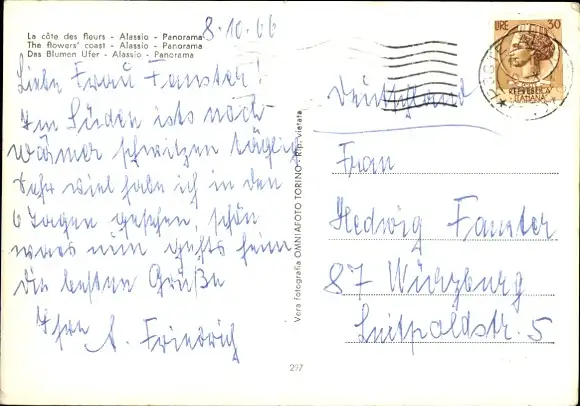 8.10.66
La côte des fleurs - Alassio - Panorama
The flowers' coast - Alassio - Panorama
Das Blumen Ufer - Alassio - Panorama
Liebe Frau Fanster!
Im Süden ists noch
wärmer schwitzen täglich
Sehr viel habe ich in den
6 Tagen gesehen, schön
wars nun gehts heim
die besten Grüße
Ihre A. Friedrich
Vera fotografia OMNIAFOTO TORINO - Rip. vietata
297
LIRE 30
REPVBBLICA
ITALIANA
Deutschland
Frau
Hedwig Fanster
87 Würzburg
Luitpoldstr. 5